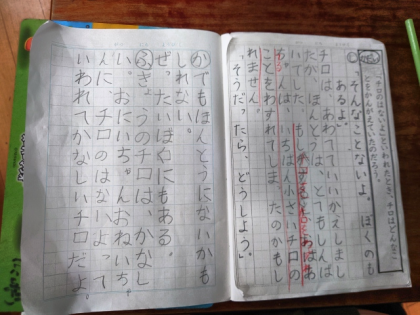 「チロのはないよ」といわれたとき、チロはどん
なことをかんがえていたのだろう。
「そんなことないよ。ぼくのも
あるよ。」
チロは、あわてていいかえしまし
たが、ほんとうは、とてもしんぱ
いでした。もしかするとおばあ
ちゃんは、いちばん小さいチロの
ことをわすれてしまったのかもし
れません。
「そうだったら、どうしよう。」
か でもほんとうにないかも
しれない。
ぜったいぼくにもある。
ふきょうのチロは、かなし
い。おにいちゃんおねいちゃ
んに、チロのはないよって
いわれてかなしいチロだよ。